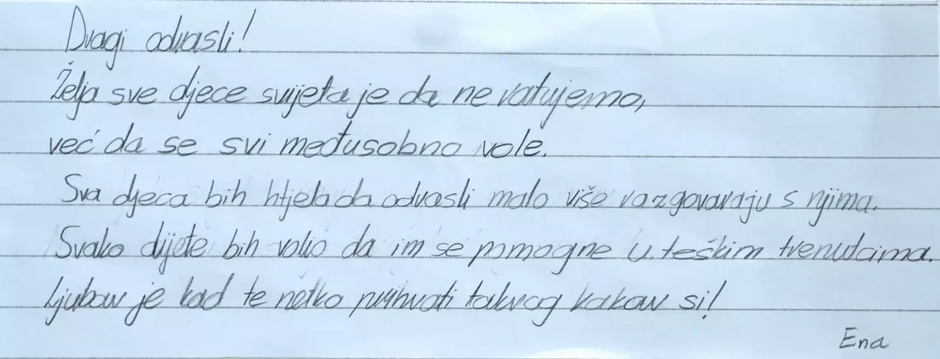 Dragi odrasli!
Želja sve djece svijeta je da ne ratujemo,
već da se svi međusobno vole.
Sva djeca bih htjela da odrasli malo više razgovaraju s njima.
Svako dijete bih volio da im se pomogne u teškim trenutcima.
Ljubav je kad te netko prihvati takvog kakav si!
Ena